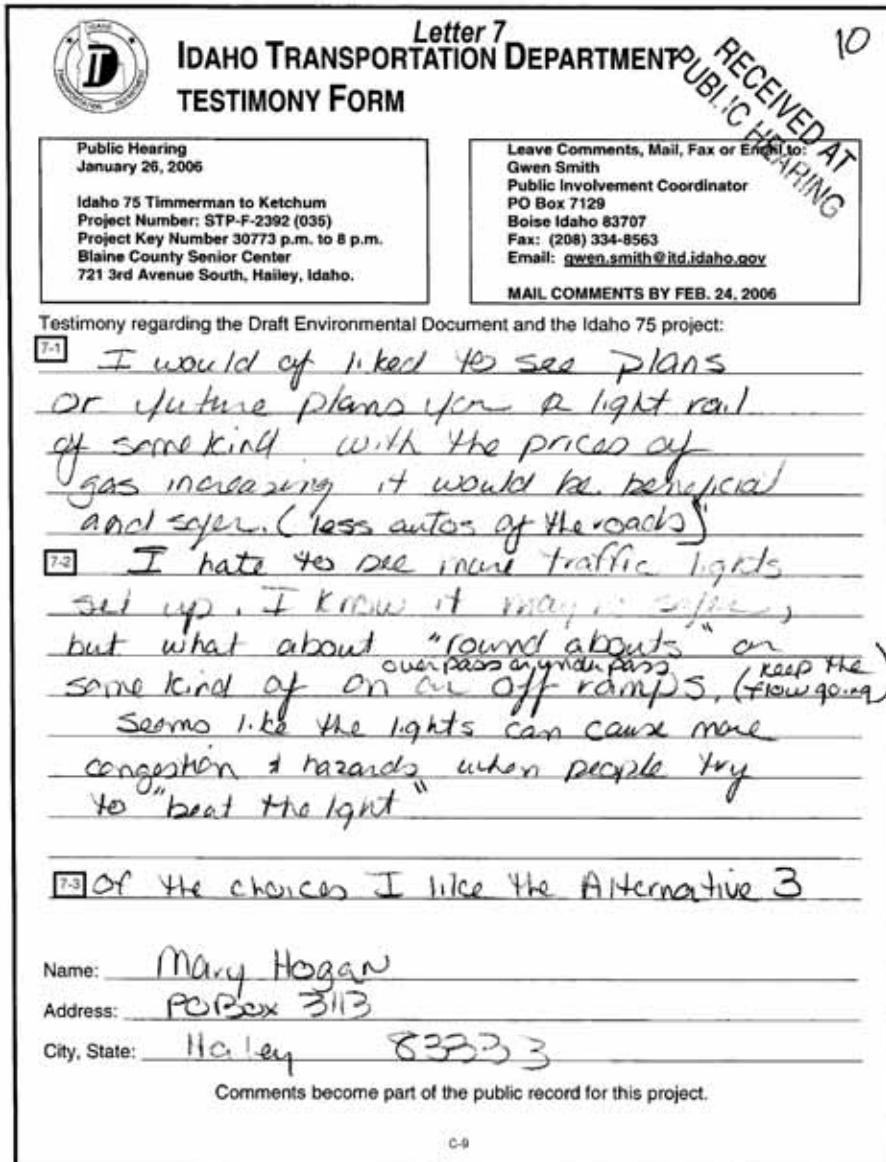 Letter 7
10
IDAHO TRANSPORTATION DEPARTMENT
TESTIMONY FORM
RECEIVED AT
PUBLIC HEARING
IDAHO
TRANSPORTATION DEPARTMENT
Public Hearing
January 26, 2006
Idaho 75 Timmerman to Ketchum
Project Number: STP-F-2392 (035)
Project Key Number 30773 p.m. to 8 p.m.
Blaine County Senior Center
721 3rd Avenue South, Hailey, Idaho.
Leave Comments, Mail, Fax or Email to:
Gwen Smith
Public Involvement Coordinator
PO Box 7129
Boise Idaho 83707
Fax: (208) 334-8563
Email: gwen.smith@itd.idaho.gov
MAIL COMMENTS BY FEB. 24, 2006
Testimony regarding the Draft Environmental Document and the Idaho 75 project:
7-1 I would of liked to see plans
or future plans for a light rail
of some kind with the prices of
gas increasing it would be beneficial
and safer. (less autos of the roads)
7-2 I hate to see more traffic lights
set up. I know it may is safer,
but what about "round abouts" or
overpass or underpass (keep the
some kind of on or off ramps. flow going)
Seems like the lights can cause more
congestion & hazards when people try
to "beat the lght"
7-3 Of the choices I like the Alternative 3
Name: Mary Hogan
Address: PO Box 3113
City, State: Hailey 83333
Comments become part of the public record for this project.
C-9